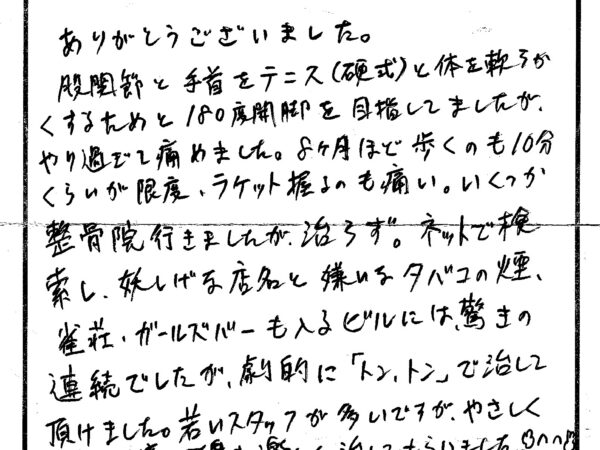 ありがとうございました。
股関節と手首をテニス(硬式)と体を軟らか
くするためと180度開脚を目指してましたが、
やり過ぎて痛めました。8ヶ月ほど歩くのも10分
くらいが限度、ラケット握るのも痛い。いくつか
整骨院行きましたが、治らず。ネットで検
索し、妖しげな店名と嫌いなタバコの煙、
雀荘・ガールズバーも入るビルには、驚きの
連続でしたが、劇的に「トン、トン」で治して
頂けました。若いスタッフが多いですが、やさしく
治してもらいました